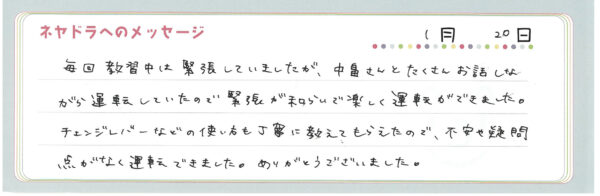 ネヤドラへのメッセージ
1月 20日
毎回教習中は緊張していましたが、中畠さんとたくさんお話しな
がら運転していたので緊張が和らいで楽しく運転ができました。
チェンジレバーなどの使い方も丁寧に教えてもらえたので、不安や疑問
点がなく運転できました。ありがとうございました。